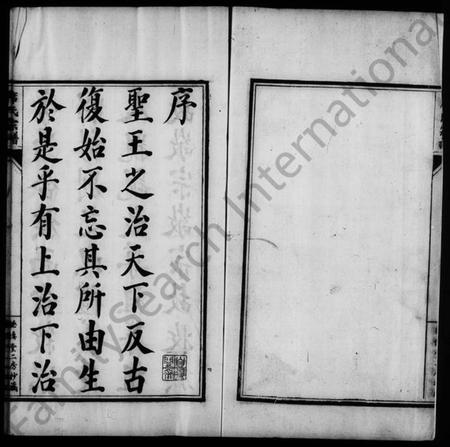 序
聖王之治天下反古
復始不忘其所由生
於是乎有上治下治
FamilySearch International